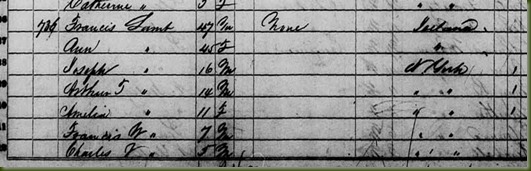 Catherine " 3 F " "
786 Francis Lamb 47 M None Ireland
Ann " 45 F "
Joseph " 16 M N York 1
Arthur " 14 M " " 1
Amelia " 11 F " " 1
Francis W " 7 M " "
Charles V " 5 M " "